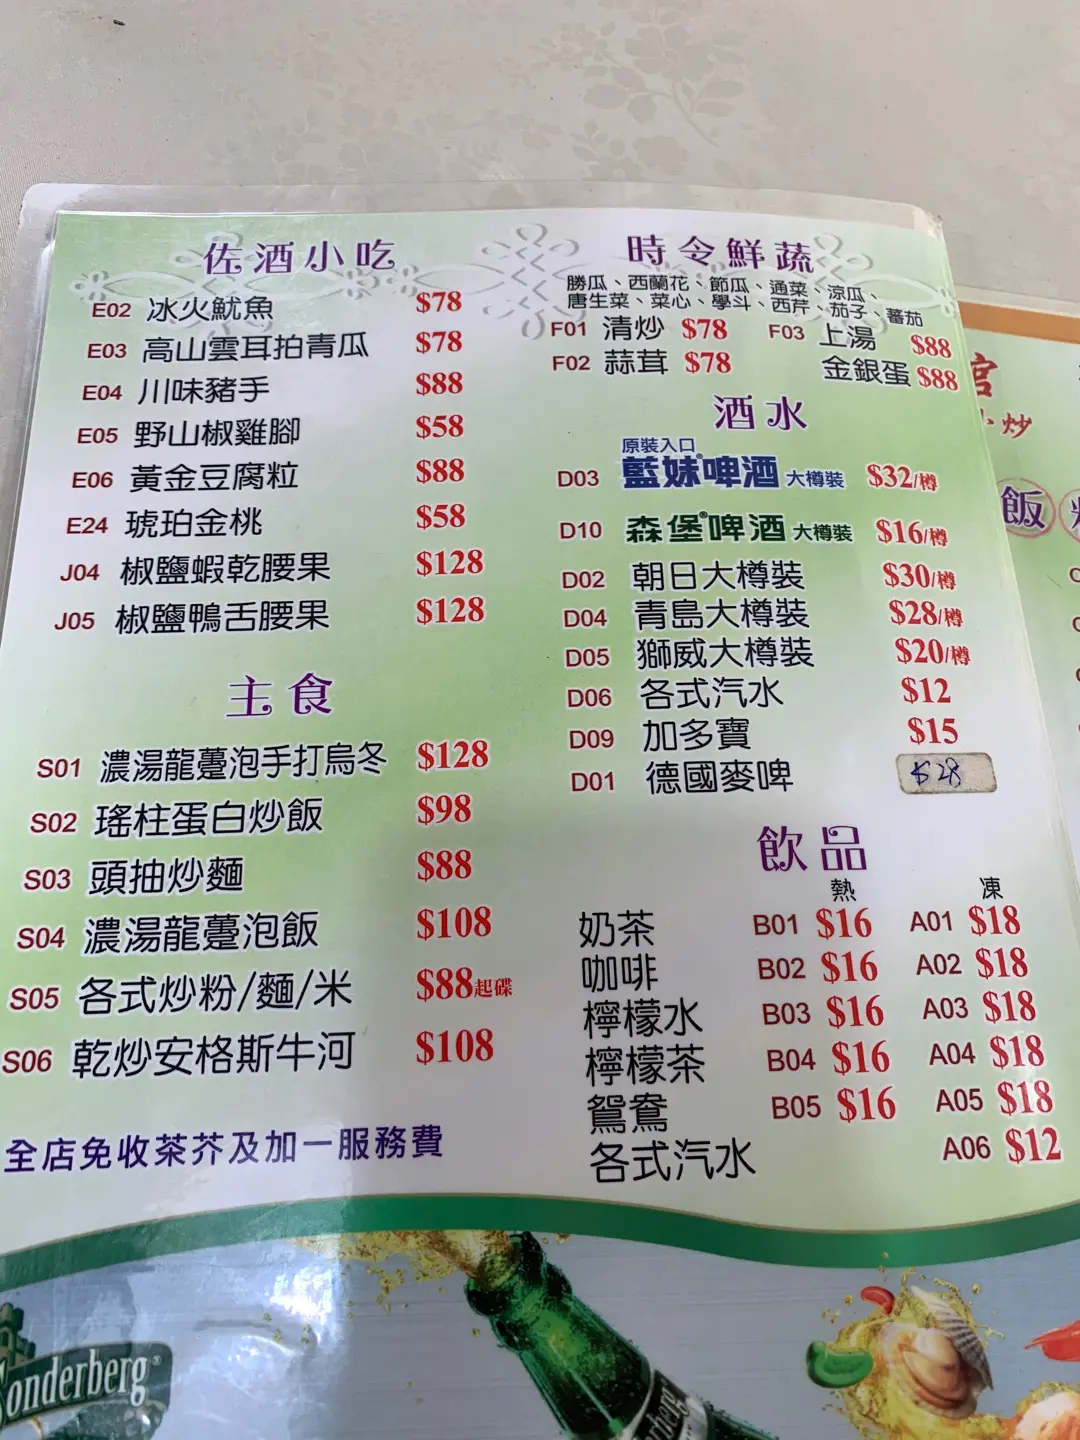 佐酒小吃
E02 冰火魷魚 $78
E03 高山雲耳拍青瓜 $78
E04 川味豬手 $88
E05 野山椒雞腳 $58
E06 黃金豆腐粒 $88
E24 琥珀金桃 $58
J04 椒鹽蝦乾腰果 $128
J05 椒鹽鴨舌腰果 $128
主食
S01 濃湯龍躉泡手打烏冬 $128
S02 瑤柱蛋白炒飯 $98
S03 頭抽炒麵 $88
S04 濃湯龍躉泡飯 $108
S05 各式炒粉/麵/米 $88起碟
S06 乾炒安格斯牛河 $108
全店免收茶芥及加一服務費
時令鮮蔬
勝瓜、西蘭花、節瓜、通菜、涼瓜、
唐生菜、菜心、學斗、西芹、茄子、蕃茄
F01 清炒 $78 F03 上湯 $88
F02 蒜茸 $78 金銀蛋 $88
酒水
原裝入口
D03 藍妹®啤酒 大樽裝 $32/樽
D10 森堡®啤酒 大樽裝 $16/樽
D02 朝日大樽裝 $30/樽
D04 青島大樽裝 $28/樽
D05 獅威大樽裝 $20/樽
D06 各式汽水 $12
D09 加多寶 $15
D01 德國麥啤 $28
飲品
熱 凍
奶茶 B01 $16 A01 $18
咖啡 B02 $16 A02 $18
檸檬水 B03 $16 A03 $18
檸檬茶 B04 $16 A04 $18
鴛鴦 B05 $16 A05 $18
各式汽水 A06 $12
小炒
飯
Sonderberg®